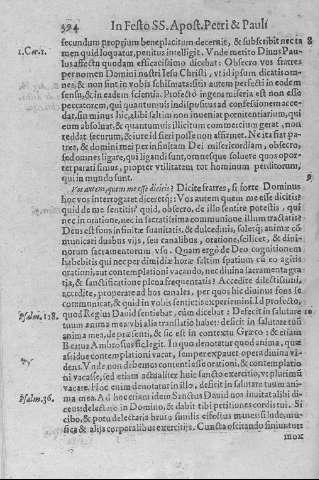 394 In Festo SS. Apost. Petri & Pauli
secundum proprium beneplacitum decernit, & subscribit nec ta 8
1. Cor. 1. men quid loquatur, penitus intelligit. Vnde merito Diuus Pau-
lus affectu quodam efficacissimo dicebat: Obsecro vos fratres
per nomen Domini nostri Iesu Christi, vt id ipsum dicatis om-
nes, & non sint in vobis schismata: sitis autem perfecti in eodem
sensu, & in eadem scientia. Profecto ingens miseria est non esse
peccatorem, qui quantumuis indispositus ad confessionem acce-
dat, sin minus hic, alibi saltim non inueniat poenitentiarium, qui
eum absoluat, & quantumuis illicitum commercium gerat, non
reddat securum, & iure id fieri posse non affirmet. Ne ita fiat pa-
tres, & domini mei per infinitam Dei misericordiam, obsecro,
sed omnes ligare, qui ligandi sunt, omnesque soluere quos opor-
tet parati simus, propter vtilitatem tot hominum perditorum,
qui in mundo sunt. 9
Vos autem, quem me esse dicitis? Dicite fratres, si forte Dominus
hoc vos interrogaret diceretq;: Vos autem quem me esse dicitis?
quid de me sentitis? quid, obsecro, de illo sentire potestis, qui
nec in oratione, nec in sacratissima communione illum tractatis?
Deus est fons infinitæ suauitatis, & dulcedinis, soletq; animæ cõ-
municari duabus vijs, seu canalibus, oratione, scilicet, & diui-
norum sacramentorum vsu. Quam ergò de Deo cognitionem
habebitis qui nec per dimidiæ horæ saltim spatium cũ eo agitis
orationi, aut contemplationi vacando, nec diuina sacramenta gra-
tia, & sanctificatione plena frequentatis? Accedite dilectissimi,
accedite, properate ad hos canales, per quos hic diuinus fons se
communicat, & quid in vobis sentietis experiemini. Id profecto,
Psalm. 118. quod Regius Dauid sentiebat, cùm dicebat: Defecit in salutare 10
tuum anima mea: vbi alia translatio habet: deficit in salutare tuũ
anima mea, de præsenti, & sic est in contextu Græco: & etiam
sanctus Ambrosius sic legit. In quo denotatur quod anima, quæ
assidue contemplationi vacat, semper expauet opera diuina vi-
dens. Vnde non debemus contenti esse orationi, & contemplatio-
ni vacasse, sed etiam actualiter huic sancto exercitio, vt plurimũ
vacare. Hoc enim denotatur in illo, deficit in salutare tuum ani-
Psalm. 36. ma mea. Ad hoc etiam idem Sanctus Dauid nos inuitat alibi di-
cens: delectare in Domino, & dabit tibi petitiones cordis tui. Si
cibo, & potu delectaris bruto similis effectus munere si ludo, mu-
sica & alijs corporalibus exercitijs. Cuncta oscitando finiuntur
mox